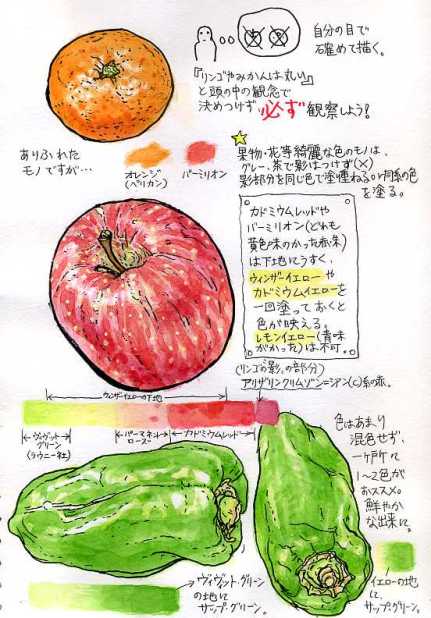 自分の目で
確めて描く。
『リンゴやみかんは丸い』
と頭の中の観念で
決めつけず必ず観察しよう!
ありふれた
モノですが…
オレンジ
(ペリカン)
バーミリオン
果物・花等綺麗な色のモノは、
グレー、茶で影はつけず(×)
影部分を同じ色で塗重ねるor同系の色
を塗る。
カドミウムレッドや
バーミリオン(どれも
黄色味のかった赤系)
は下地にうすく、
ウィンザーイエローや
カドミウムイエローを
一回塗っておくと
色が映える。
レモンイエロー(青味
がかった)は不可。
(リンゴの影の部分)
アリザリンクリムゾン=シアン(C)系の赤。
ウィンザーイエローの下地
ヴィヴィットグリーン
(ラウニー社)
パーマネント
ローズ
カドミウムレッド
色はあまり
混色せず、
一ヶ所に
1〜2色が
おススメ。
鮮やか
な出来に。
イエローの地
に、
サップグリーン。
ヴィヴィット・グリーン
の地に
サップ・グリーン。